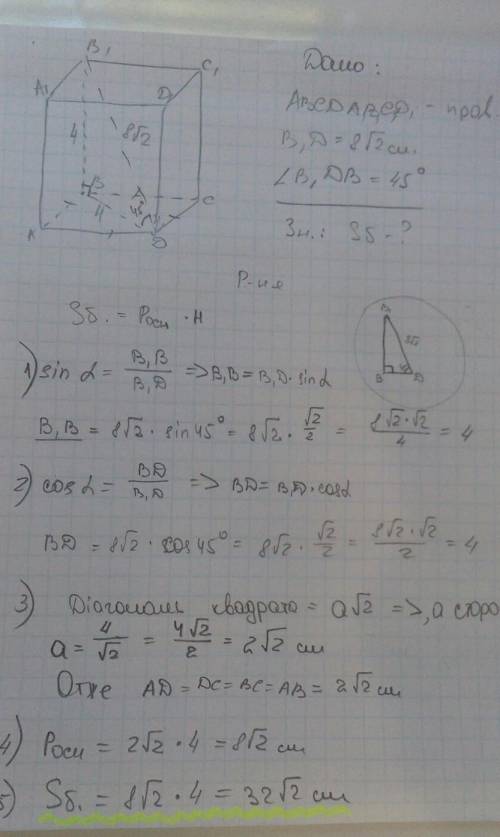 B₁ C₁
A₁ D₁
4 8√2
B C
4 45°
A D
Дано:
ABCDA₁B₁C₁D₁ - прав.
B₁D = 8√2 см.
∠B₁DB = 45°
Зн.: Sб - ?
Р-ня
Sб. = Pосн · H
B₁
8√2
B D
1) sin α = B₁B / B₁D => B₁B = B₁D · sin α
B₁B = 8√2 · sin 45° = 8√2 · √2/2 = 8√2·√2 / 4 = 4
2) cos α = BD / B₁D => BD = B₁D · cos α
BD = 8√2 · cos 45° = 8√2 · √2/2 = 8√2·√2 / 2 = 4
3) Діагональ квадрата = a√2 =>, a сторо
a = 4/√2 = 4√2/2 = 2√2 см
Отже AD = DC = BC = AB = 2√2 см
4) Pосн = 2√2 · 4 = 8√2 см
5) Sб. = 8√2 · 4 = 32√2 см